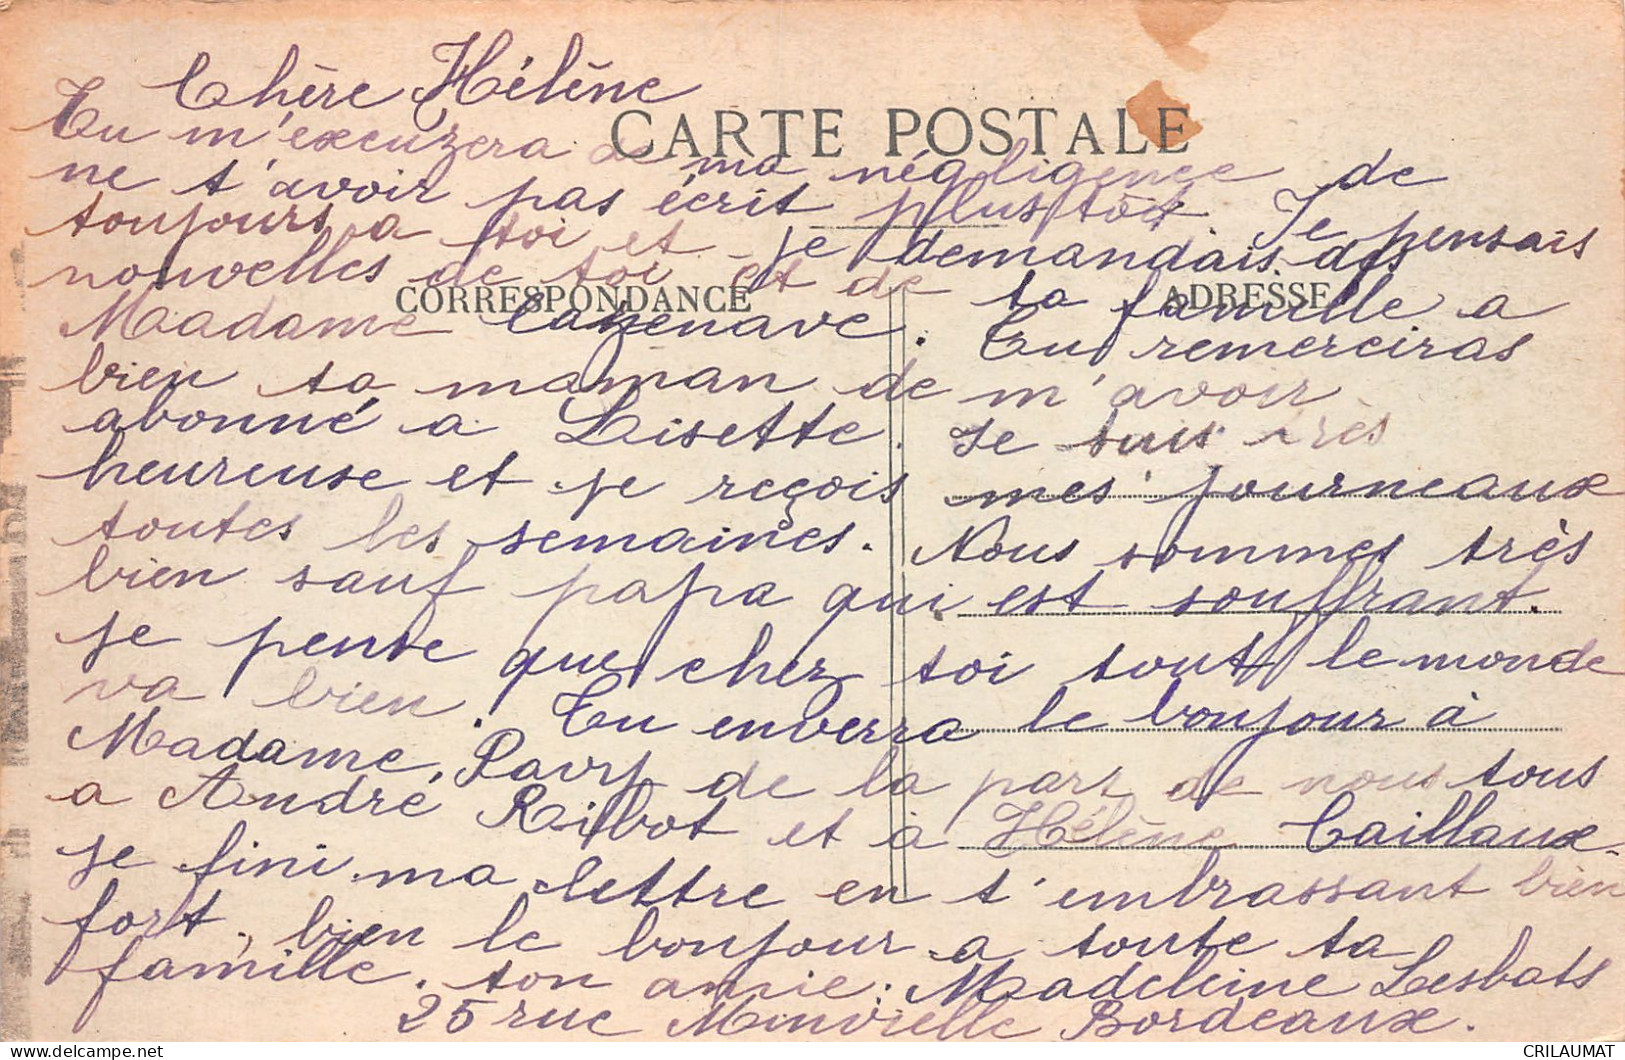 Chère Hélène
CARTE POSTALE
Tu m'excuzera a ma négligence de
ne t'avoir pas écrit plus tôt. Je pensais
toujours a toi et je demandais des
nouvelles de toi et de ta famille a
CORRESPONDANCE
ADRESSE
Madame Cazenave. Tu remerciras
bien ta maman de m'avoir
abonné a Lisette. Je suis très
heureuse et je reçois mes journeaux
toutes les semaines. Nous sommes très
bien sauf papa qui est souffrant.
je pense que chez toi tout le monde
va bien. Tu enverra le bonjour à
Madame Pavy de la part de nous tous
a André Ribot et à Hélène Caillaux.
je fini ma lettre en t'embrassant bien
fort, bien le bonjour a toute ta
famille. ton amie: Madeleine Lesbats
25 rue Minvielle Bordeaux.
delcampe.net
CRILAUMAT